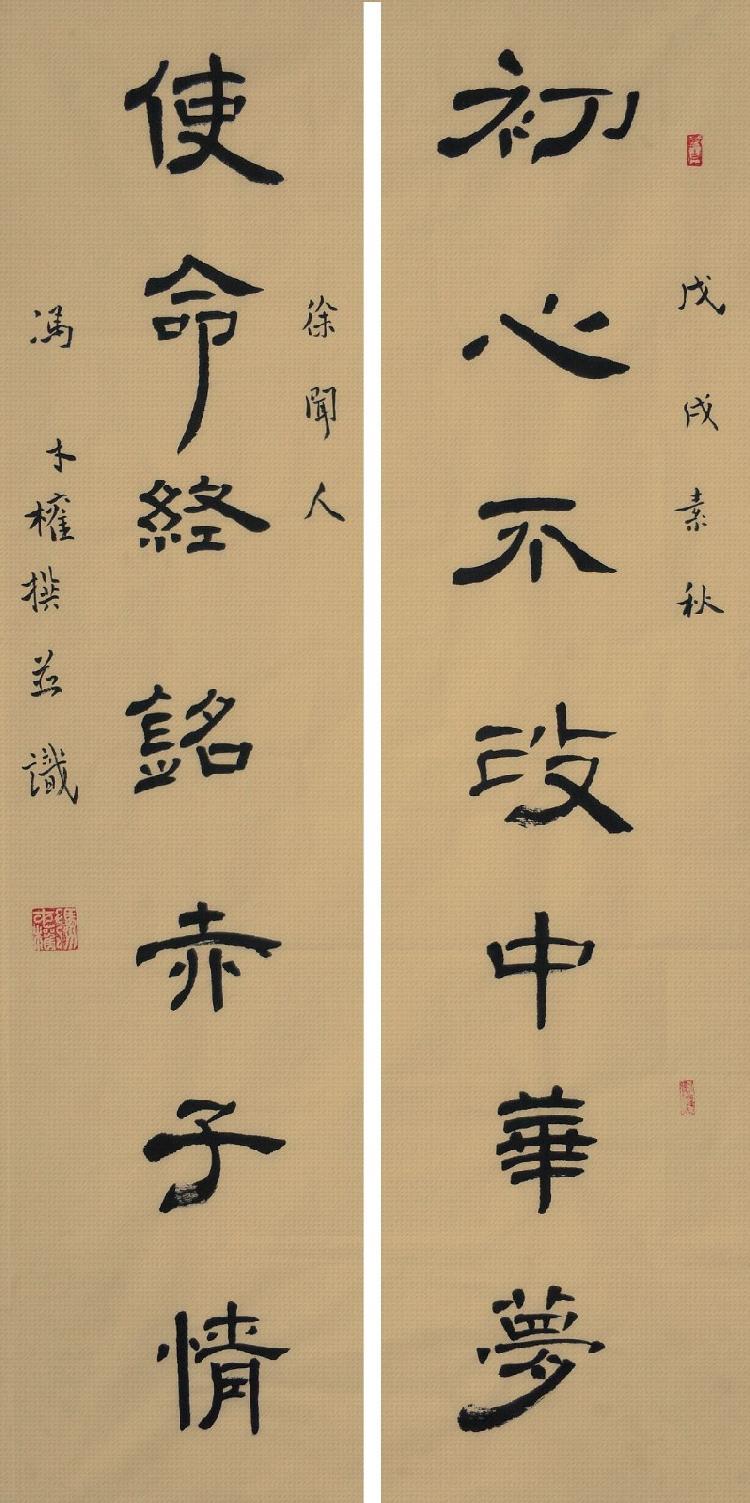 戊戌素秋
初心不改中華夢
徐聞人
使命終銘赤子情
馮才權撰並識